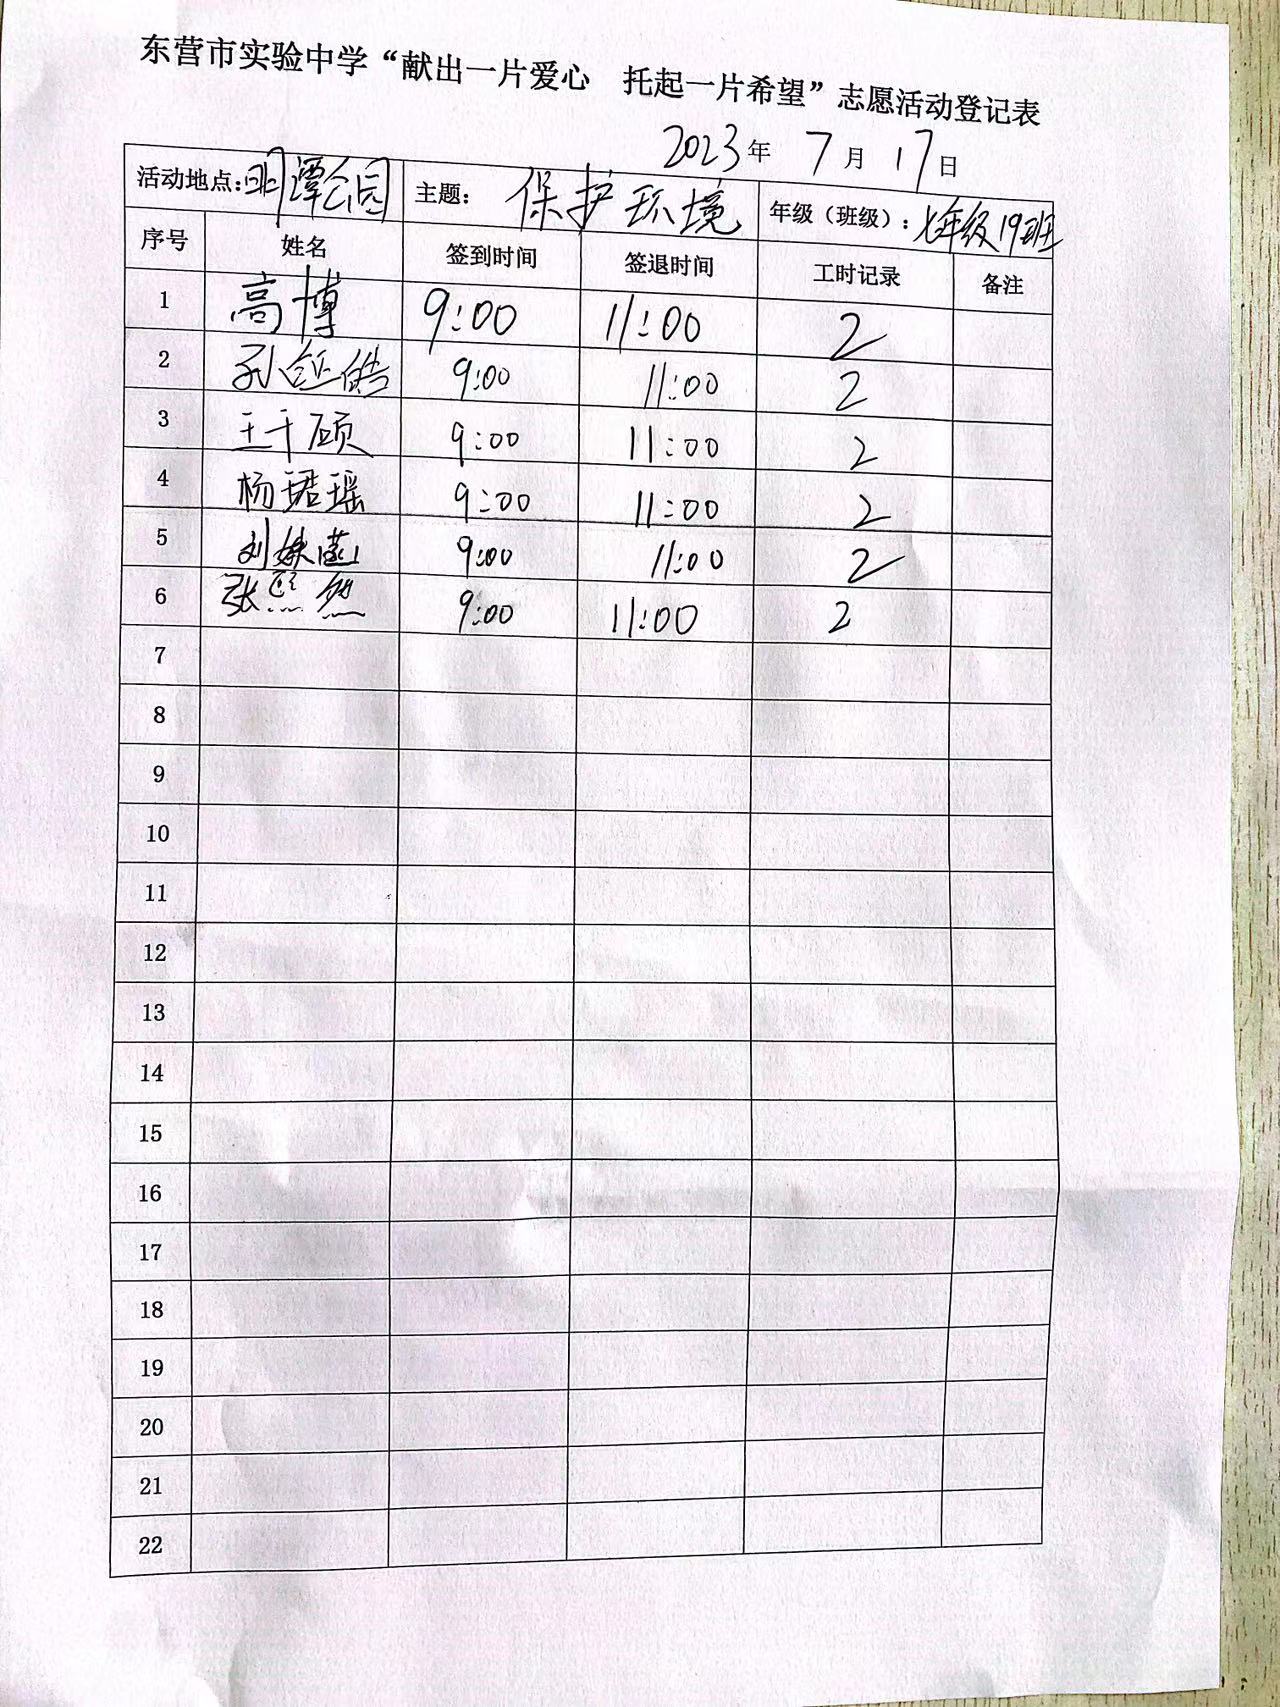 东营市实验中学“献出一片爱心 托起一片希望”志愿活动登记表
2023年 7月 17日
活动地点:明潭公园 主题: 保护环境 年级(班级):七年级19班
序号 姓名 签到时间 签退时间 工时记录 备注
1 高博 9:00 11:00 2
2 孙钰皓 9:00 11:00 2
3 王千硕 9:00 11:00 2
4 杨珺瑶 9:00 11:00 2
5 刘姝菡 9:00 11:00 2
6 张熙然 9:00 11:00 2
7
8
9
10
11
12
13
14
15
16
17
18
19
20
21
22